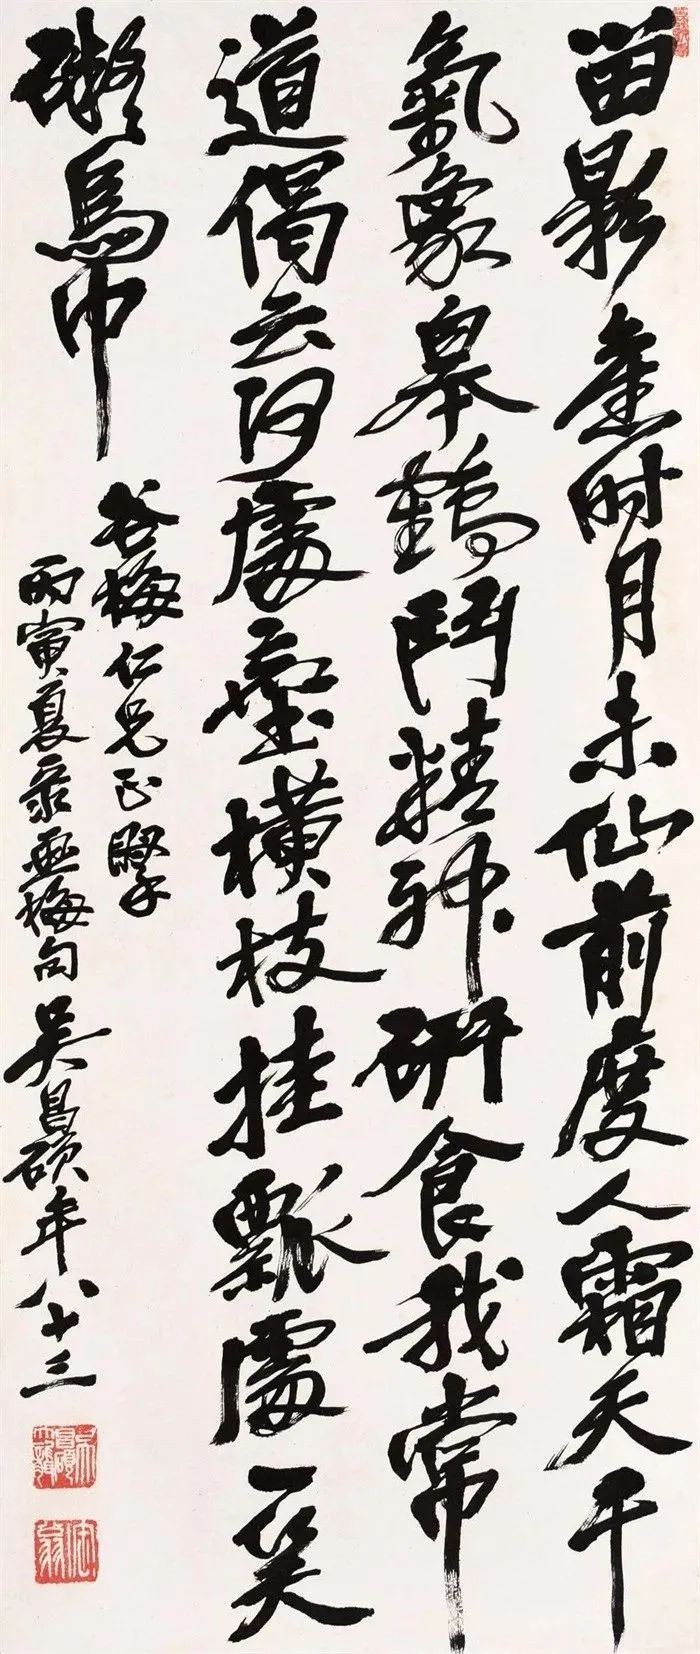 畱影盦时月未仙前度人霜天干
氣象皋鶴鬥精神研食我常
道偈云何處塵橫枝挂瓢處一笑
礙烏巾
谷梅仁兄正
丙寅夏录画梅句吴昌硕年八十三